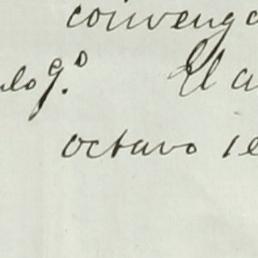 convenga
ulo 9.º El a
octavo le